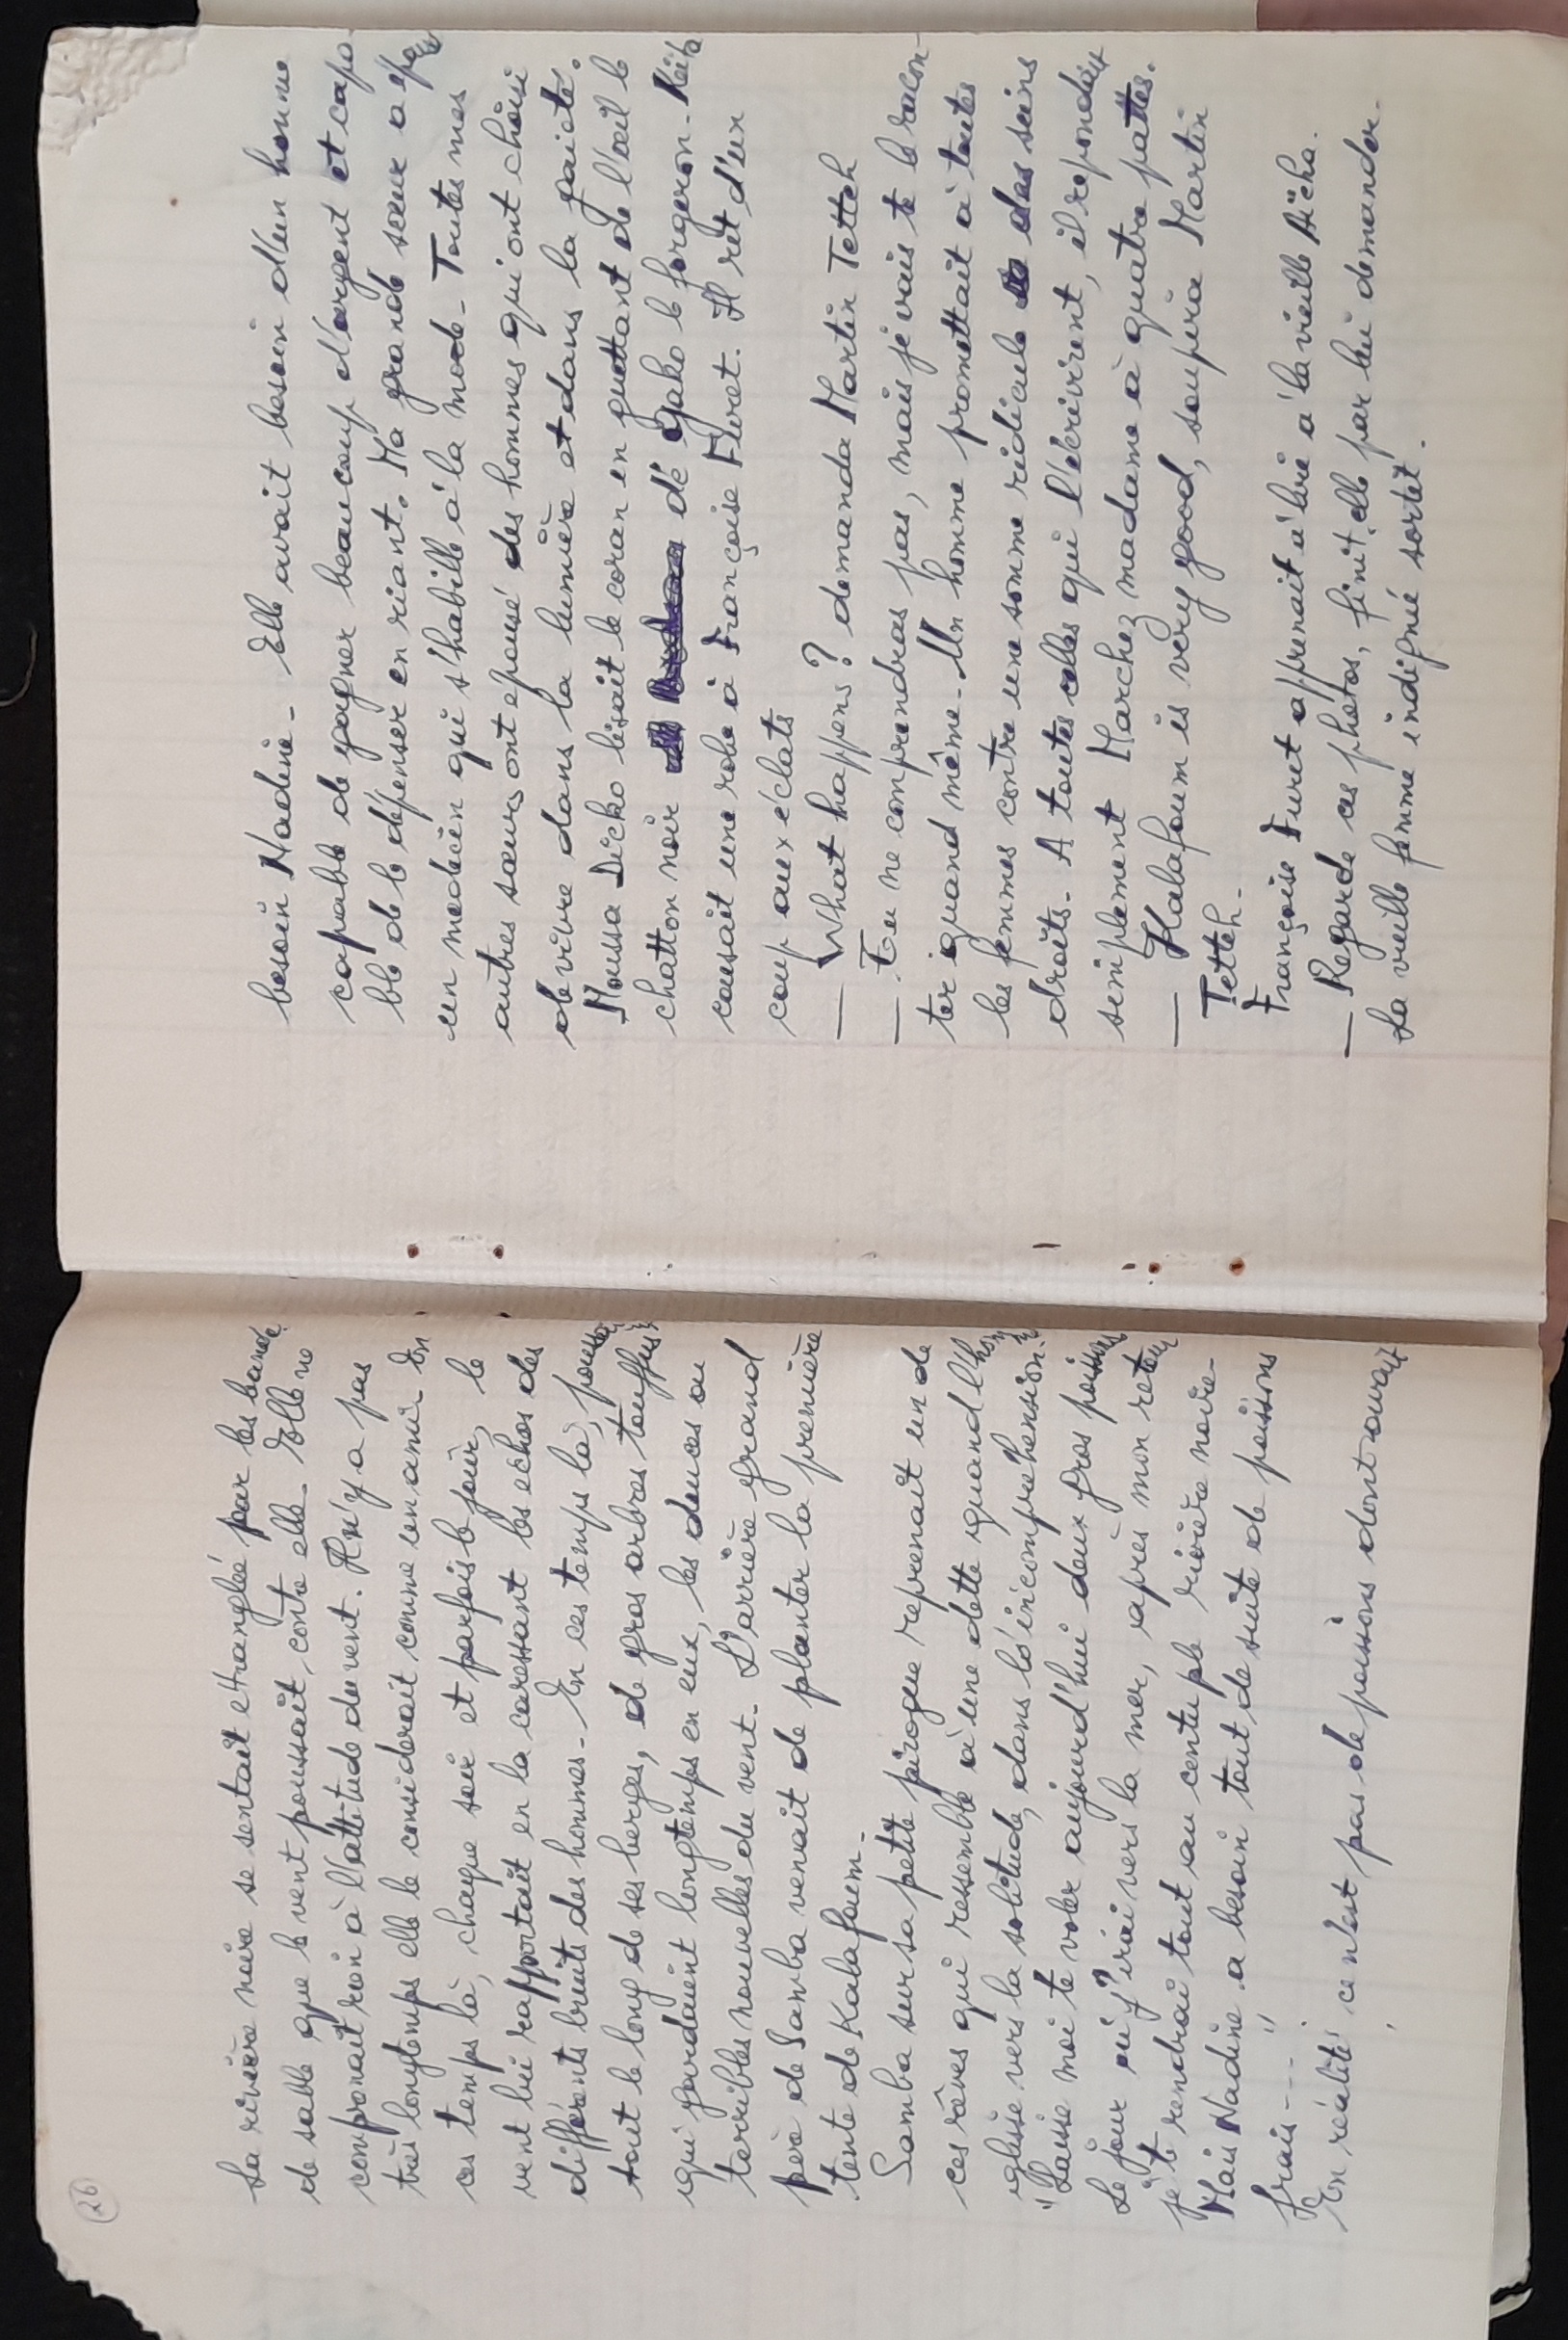 26
La rivière noire se sentait etranglée par les bancs
de sable que le vent poussait, contre elle. Elle ne
comprenait rien à l'attitude du vent. Il n'y a pas
très longtemps elle le considerait comme un ami. En
ces temps là, chaque soir et parfois le jour, le
vent lui rapportait en la caressant les echos des
différents bruits des hommes. En ces temps là, poussa
tout le long de ses berges, de gros arbres touffus
qui gardaient longtemps en eux, les douces ou
terribles nouvelles du vent. L'arrière grand
père de Samba venait de planter la première
tente de Kalafoum.
Samba sur sa petite pirogue reprenait un de
ces rêves qui ressemble à une dette quand l'hom
glisse vers la solitude, dans l'incompréhension.
"Laisse moi te voler aujourd'hui deux gros poissons
Le jour où j'irai vers la mer, après mon retour
je te rendrai tout au centuple rivière noire.
Mais Nadine a besoin tout de suite de poissons
frais---"
En réalité, ce n'est pas de poissons dont avait
besoin Nadine. Elle avait besoin d'un homme
capable de gagner beaucoup d'argent et capa-
ble de le dépenser en riant. Ma grande sœur a épousé
un medecin qui s'habille à la mode. Toutes mes
autres sœurs ont epousé des hommes qui ont choisi
de vivre dans la lumière et dans la gaieté.
Moussa Dicko lisait le coran en guettant de l'œil le
chatton noir de Gako le forgeron. Keita
cousait une robe à Françoise Furet. Il rit d'un
coup aux éclats
— What happens? demanda Martin Tetteh
— Tu ne comprendras pas, mais je vais te le racon-
ter quand même. Un homme promettait à toutes
les femmes contre une somme ridicule des seins
droits. A toutes celles qui l'écrivirent, il repondit
simplement Marchez madame à quatre pattes.
— Kalafoum is very good, soupira Martin
Tetteh.
Françoise Furet apprenait à lire à la vieille Aïcha.
— Regarde ces photos, finit elle par lui demander.
La vieille femme indignée sortit.